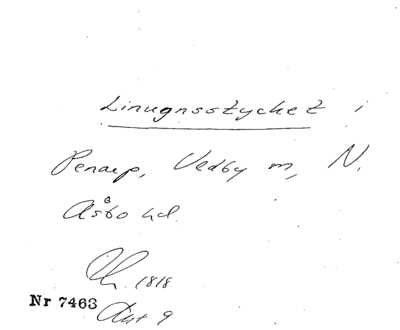 Linugnsstycket i
Penarp, Vedby m, N.
Åsbo hd.
1818
Nr 7463
Akt 9